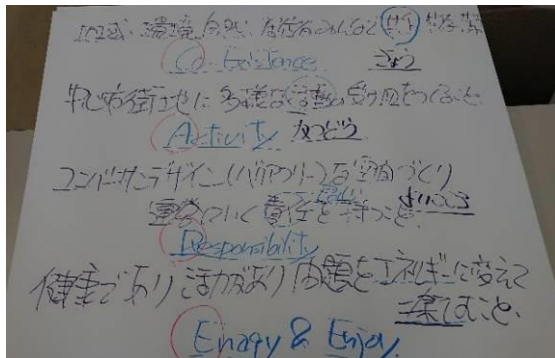 地域、環境、自然、居住者みんなと共に
Co-Existence きょう
中心市街地に多様な活動の受け皿をつくること
Activity かつどう
ユニバーサルデザイン(バリアフリー)な空間づくり
運営していく責任を持つこと
Responsibility
健康であり活力があり問題をエネルギーに変えて
楽しむこと、
Enagy & Enjoy